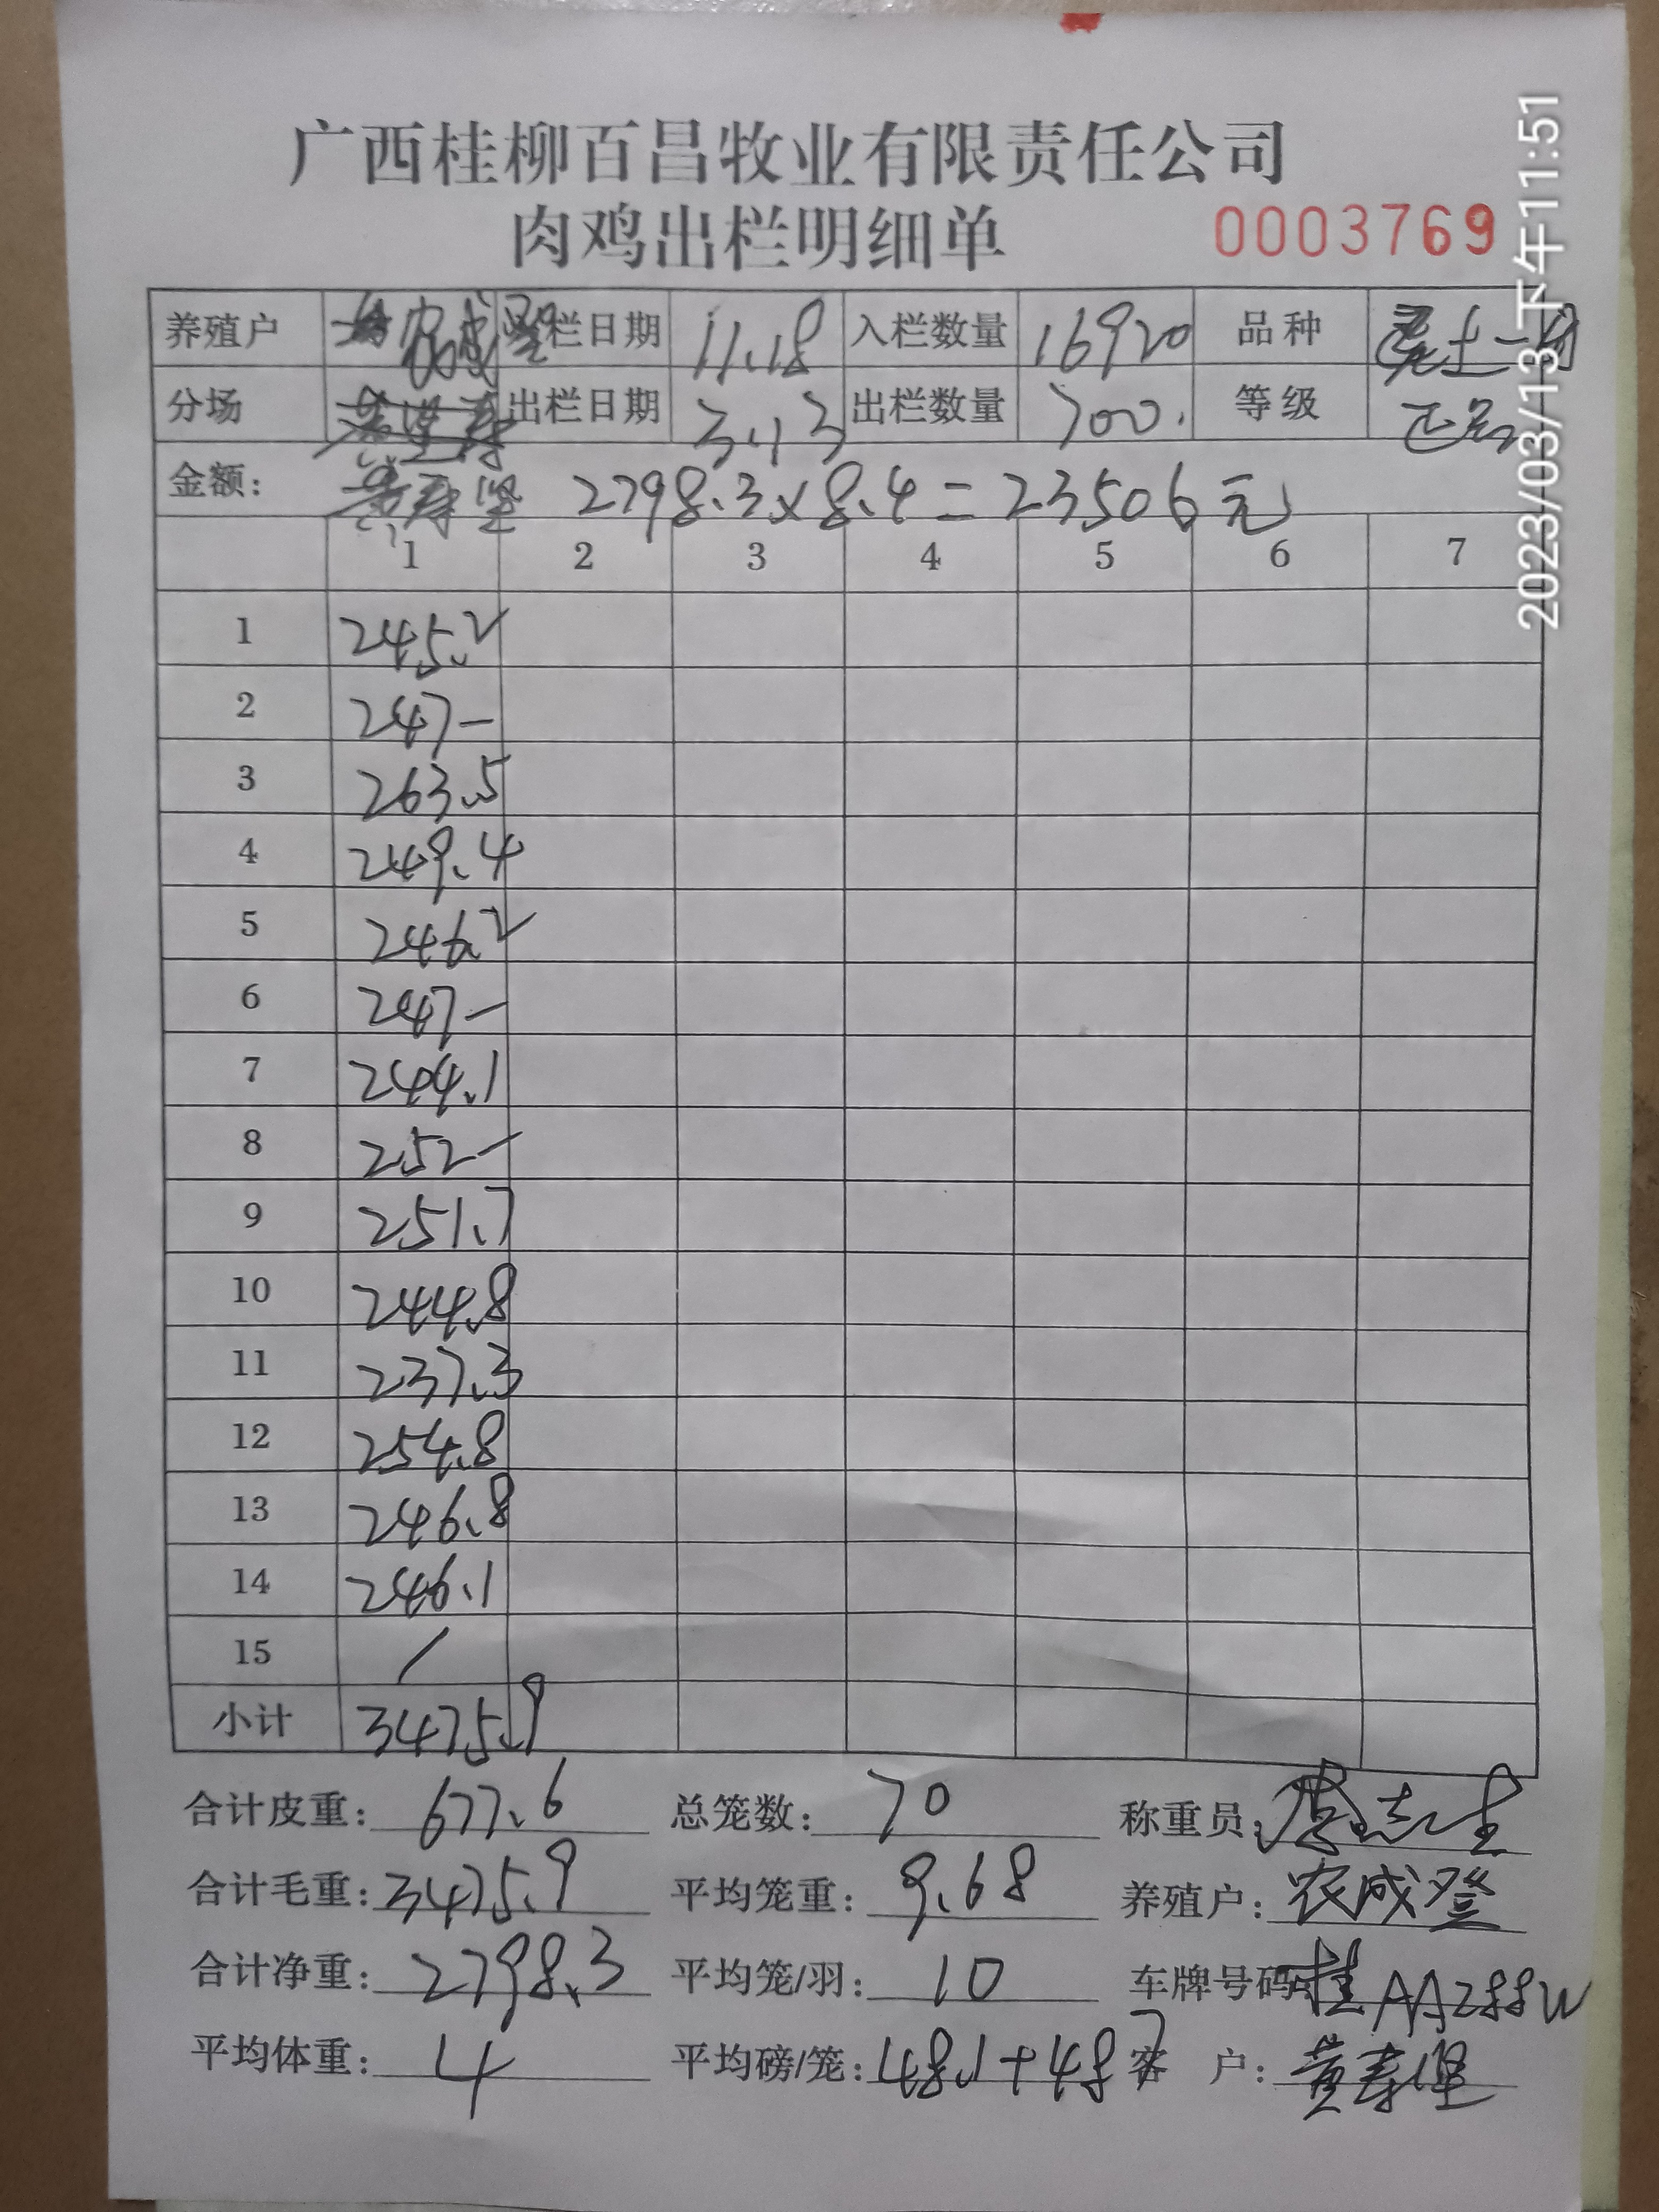 广西桂柳百昌牧业有限责任公司
肉鸡出栏明细单 0003769
养殖户 农成登 栏日期 11.18 入栏数量 16920 品种 土一
分场 出栏日期 3.13 出栏数量 700. 等级 正名
金额: 黄寿坚 2798.3×8.4=23506元
1 2 3 4 5 6 7
1 245.2
2 247-
3 263.5
4 249.4
5 246.2
6 247-
7 244.1
8 252-
9 251.7
10 244.8
11 237.3
12 254.8
13 246.8
14 246.1
15 /
小计 3475.9
合计皮重: 677.6 总笼数: 70 称重员: 志生
合计毛重: 3475.9 平均笼重: 9.68 养殖户: 农成登
合计净重: 2798.3 平均笼/羽: 10 车牌号码: 桂AA288W
平均体重: 4 平均磅/笼: 48.1+48.7 客户: 黄寿坚
2023/03/13 下午11:51